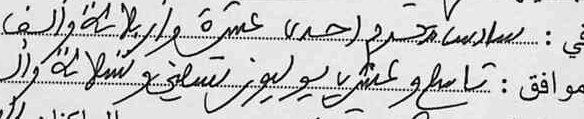 في : سادس محرم احدى عشرة واربعمائة والف
موافق : تاسع وعشرين يوليوز تسعين وتسعمائة وال